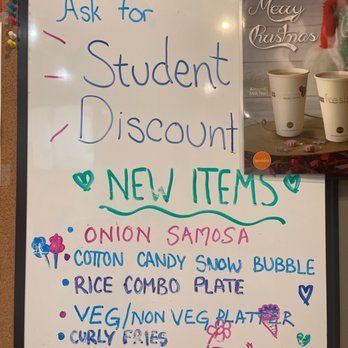 Ask for
Student
Discount
Merry
Christmas
NEW ITEMS
• ONION SAMOSA
• COTTON CANDY SNOW BUBBLE
• RICE COMBO PLATE
• VEG/NON VEG PLATTER
• CURLY FRIES